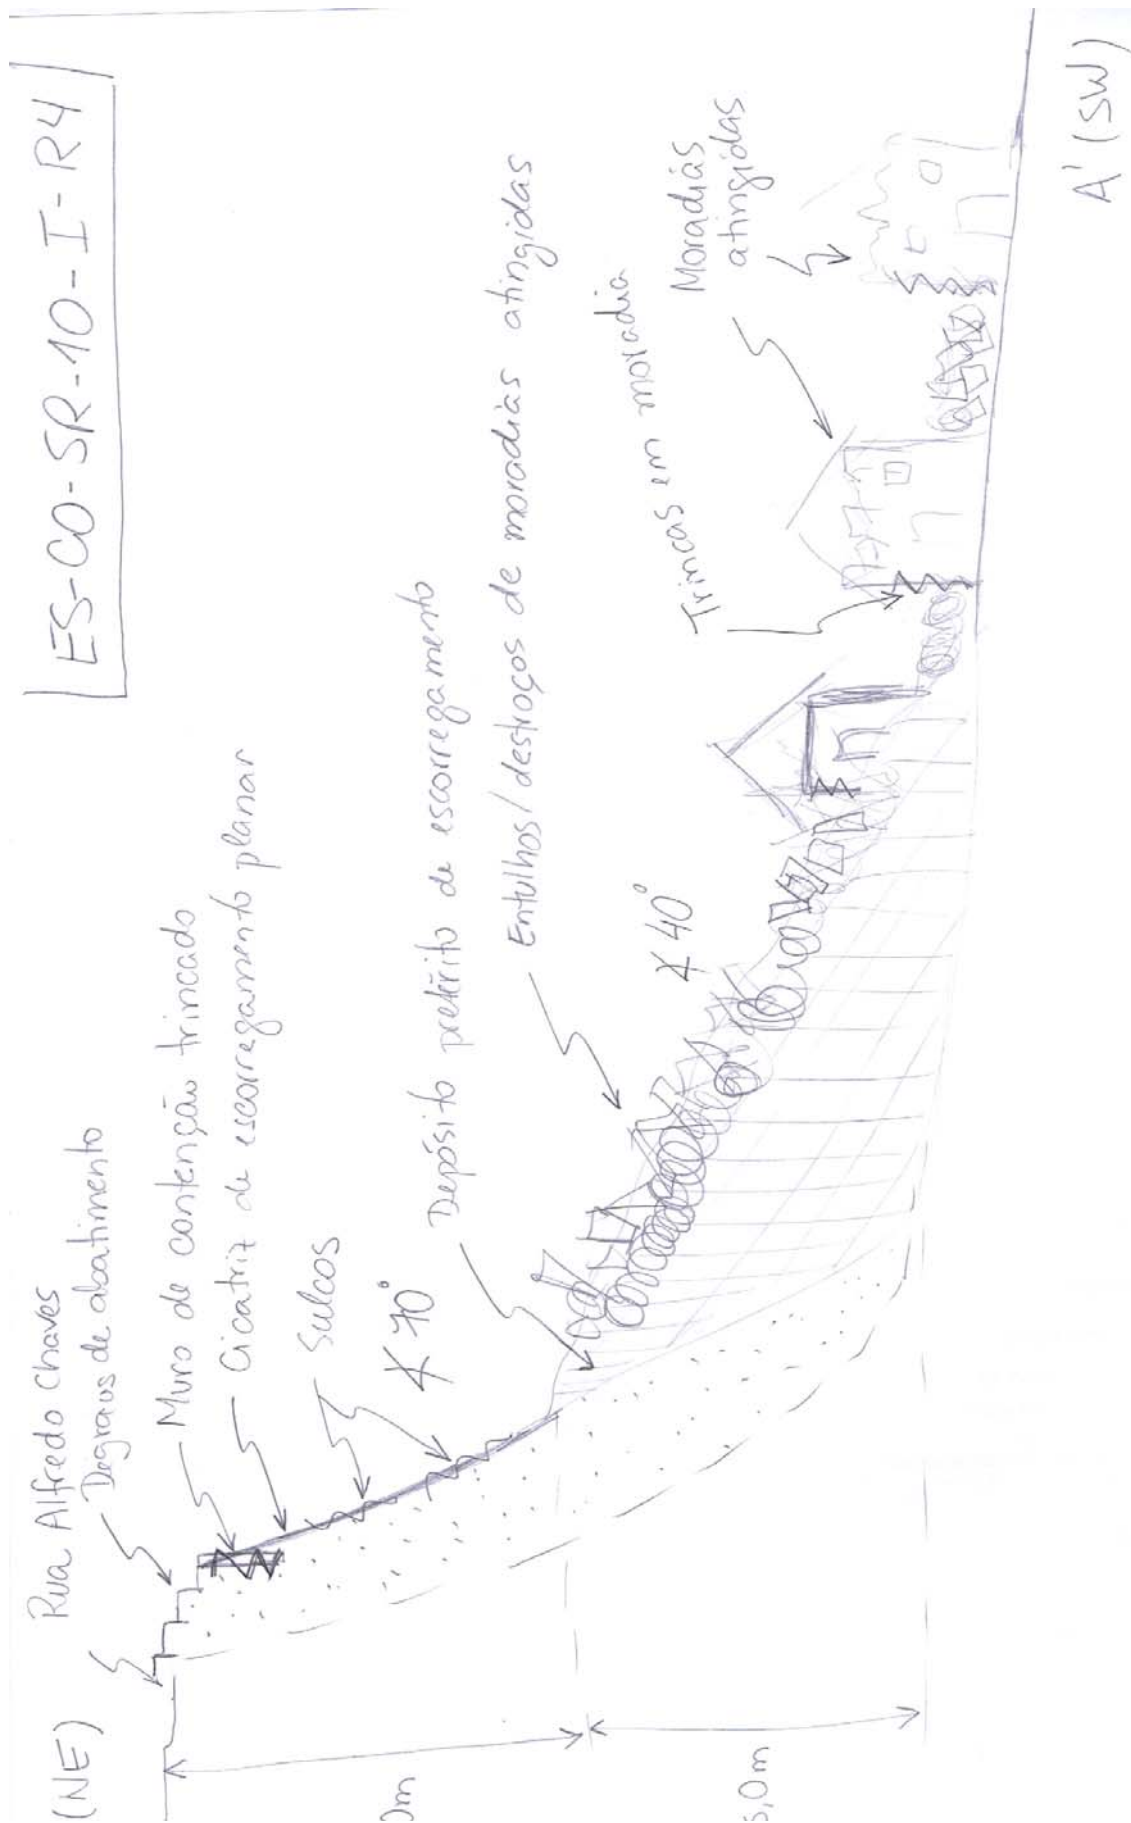 ES-CO-SR-10-I-R4
(NE)
Rua Alfredo Chaves
Degraus de abatimento
Muro de contenção trincado
Cicatriz de escorregamento planar
Sulcos
∡ 70°
Depósito pretérito de escorregamento
Entulhos/destroços de moradias atingidas
∡ 40°
Trincas em moradia
Moradias
atingidas
0m
5,0m
A' (SW)